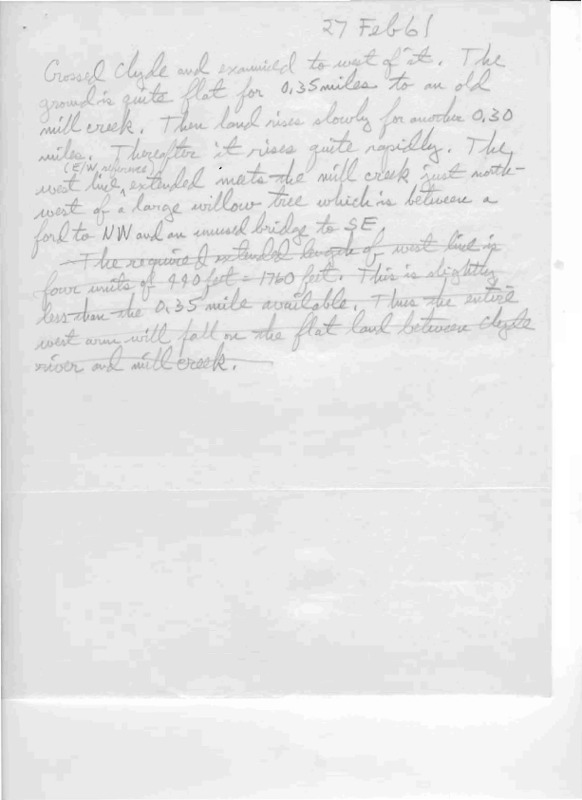 27 Feb 61
Crossed Clyde and examined to west of it. The
ground is quite flat for 0.35 miles to an old
mill creek. Then land rises slowly for another 0.30
miles. Thereafter it rises quite rapidly. The
(E/W reference)
west line, extended meets the mill creek just north-
west of a large willow tree which is between a
ford to NW and an unused bridge to SE.
The required extended length of west line is
four units of 440 feet = 1760 feet. This is slightly
less than the 0.35 mile available. Thus the entire
west arm will fall on the flat land between Clyde
river and mill creek.